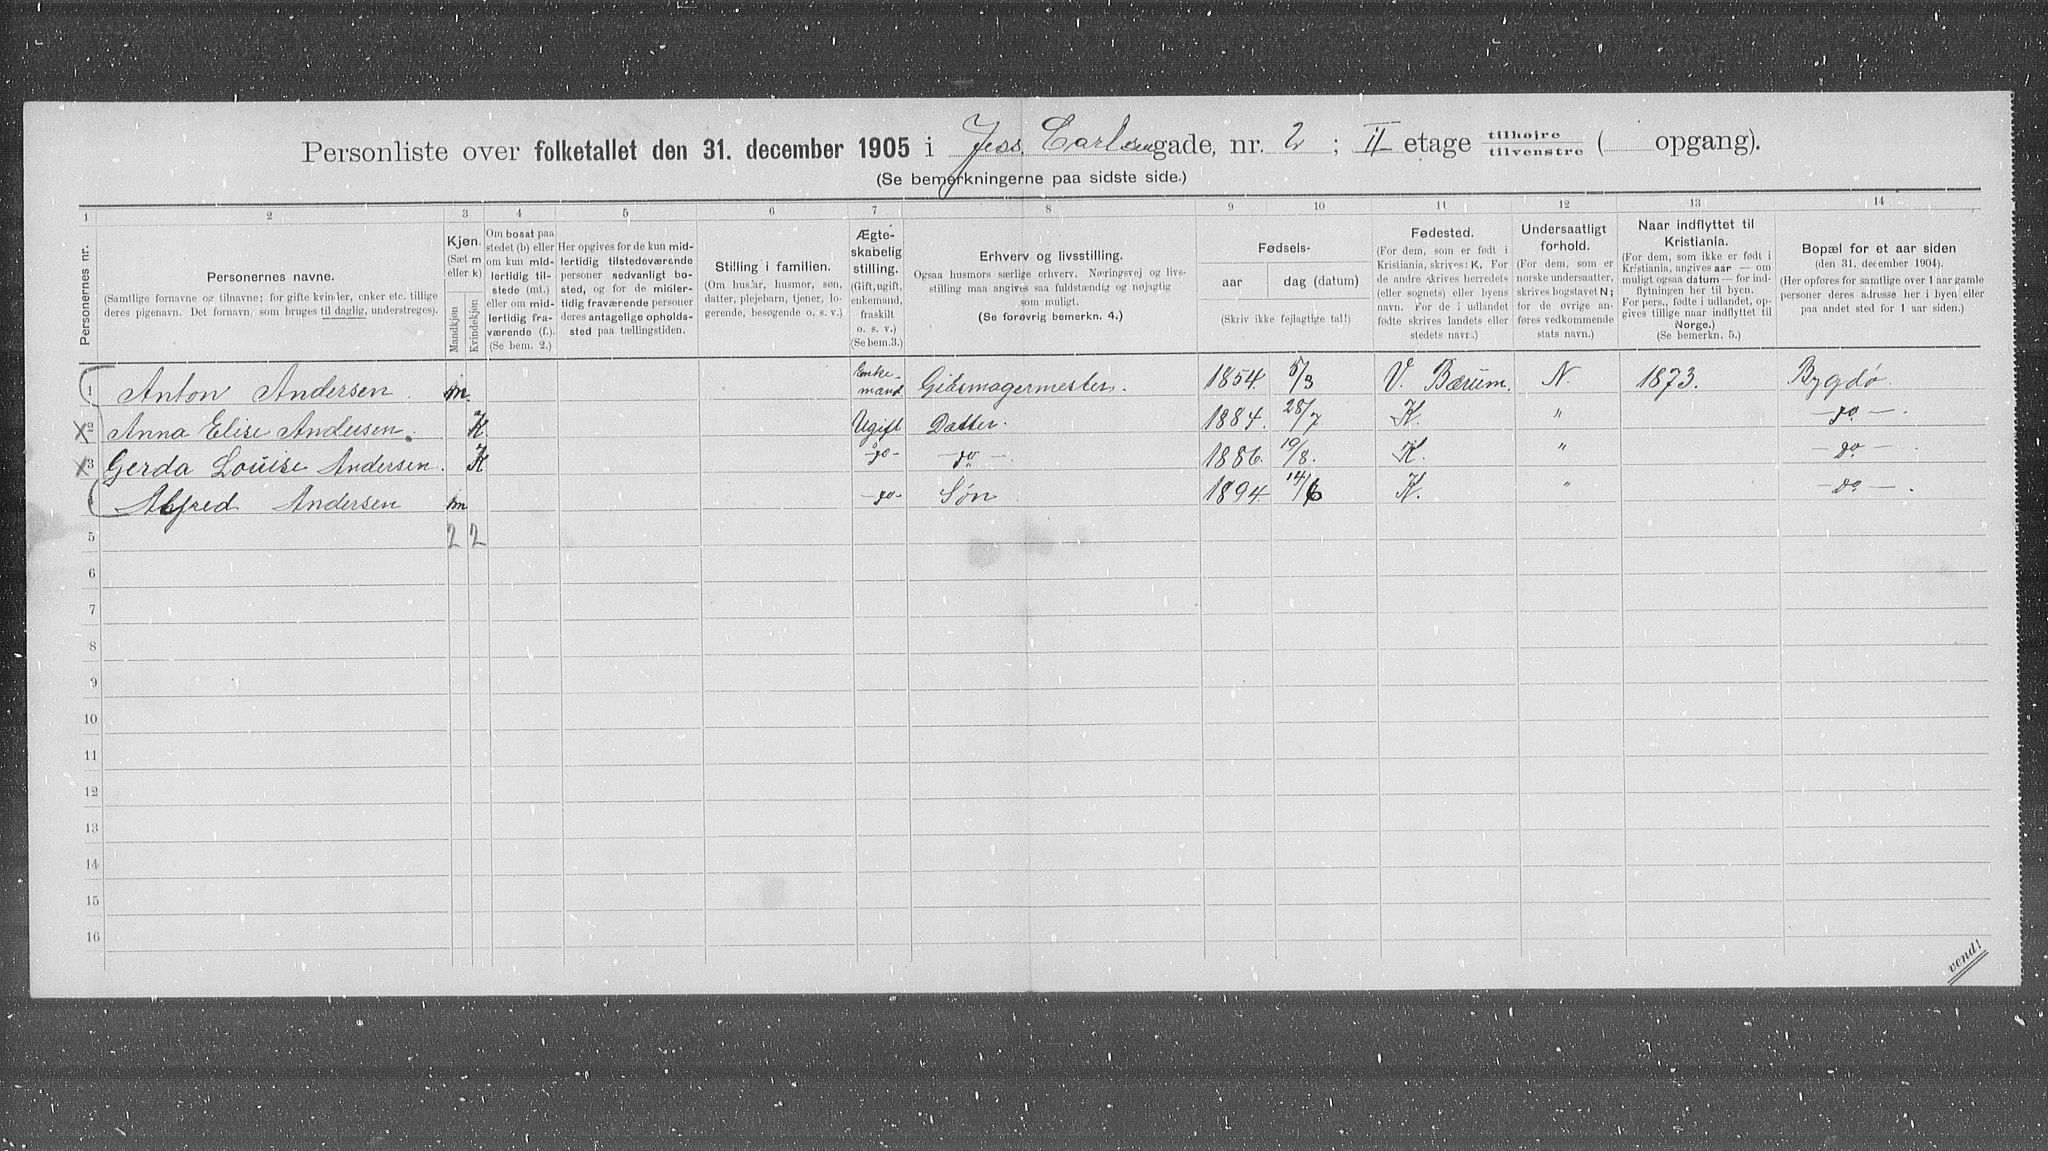 Personliste over folketallet den 31. december 1905 i Jess. Carlsengade, nr. 2 ; II etage tilhøire tilvenstre ( opgang).
(Se bemerkningerne paa sidste side.)
1 2 3 4 5 6 7 8 9 10 11 12 13 14
Personernes nr.
Personernes navne.
(Samtlige fornavne og tilnavne; for gifte kvinder, enker etc. tillige
deres pigenavn. Det fornavn, som bruges til daglig, understreges).
Kjøn.
(Sæt m
eller k)
Mandkjøn
Kvindekjøn
Om bosat paa
stedet (b) eller
om kun mid-
lertidig til-
stede (mt.)
eller om mid-
lertidig fra-
værende (f.).
(Se bem. 2.)
Her opgives for de kun mid-
lertidig tilstedeværende
personer sedvanligt bo-
sted, og for de midler-
tidig fraværende personer
deres antagelige opholds-
sted paa tællingstiden.
Stilling i familien.
(Om husfar, husmor, søn,
datter, plejebarn, tjener, lo-
gerende, besøgende o. s. v.)
Ægte-
skabelig
stilling.
(Gift, ugift,
enkemand,
fraskilt
o. s. v.)
(Se bem.3.)
Erhverv og livsstilling.
Ogsaa husmors særlige erhverv. Næringsvej og livs-
stilling maa angives saa fuldstændig og nøjagtig
som muligt.
(Se forøvrig bemerkn. 4.)
Fødsels-
aar dag (datum)
(Skriv ikke fejlagtige tal!)
Fødested.
(For dem, som er født i
Kristiania, skrives: K. For
de andre skrives herredets
(eller sognets) eller byens
navn. For de i udlandet
fødte skrives landets eller
stedets navn.)
Undersaatligt
forhold.
(For dem, som er
norske undersaatter,
skrives bogstavet N;
for de øvrige an-
føres vedkommende
stats navn.)
Naar indflyttet til
Kristiania.
(For dem, som ikke er født i
Kristiania, angives aar — om
muligt ogsaa datum — for ind-
flytningen her til byen.
For pers., fødte i udlandet, op-
gives tillige naar indflyttet til
Norge.)
(Se bemerkn. 5.)
Bopæl for et aar siden
(den 31. december 1904).
(Her opføres for samtlige over 1 aar gamle
personer deres adresse her i byen eller
paa andet sted for 1 aar siden.)
1 Anton Andersen. m. Enke-mand Gibsmagermester. 1854 5/3 V. Bærum. N. 1873. Bygdø.
X 2 Anna Elise Andersen. K Ugift Datter. 1884. 28/7 K. " — do — .
X 3 Gerda Louise Andersen. K - do - — do — 1886. 19/8. K. " — do — .
4 Alfred Andersen m - do - Søn. 1894 14/6 K. " — do — .
5 2 2
6
7
8
9
10
11
12
13
14
15
16
vend!